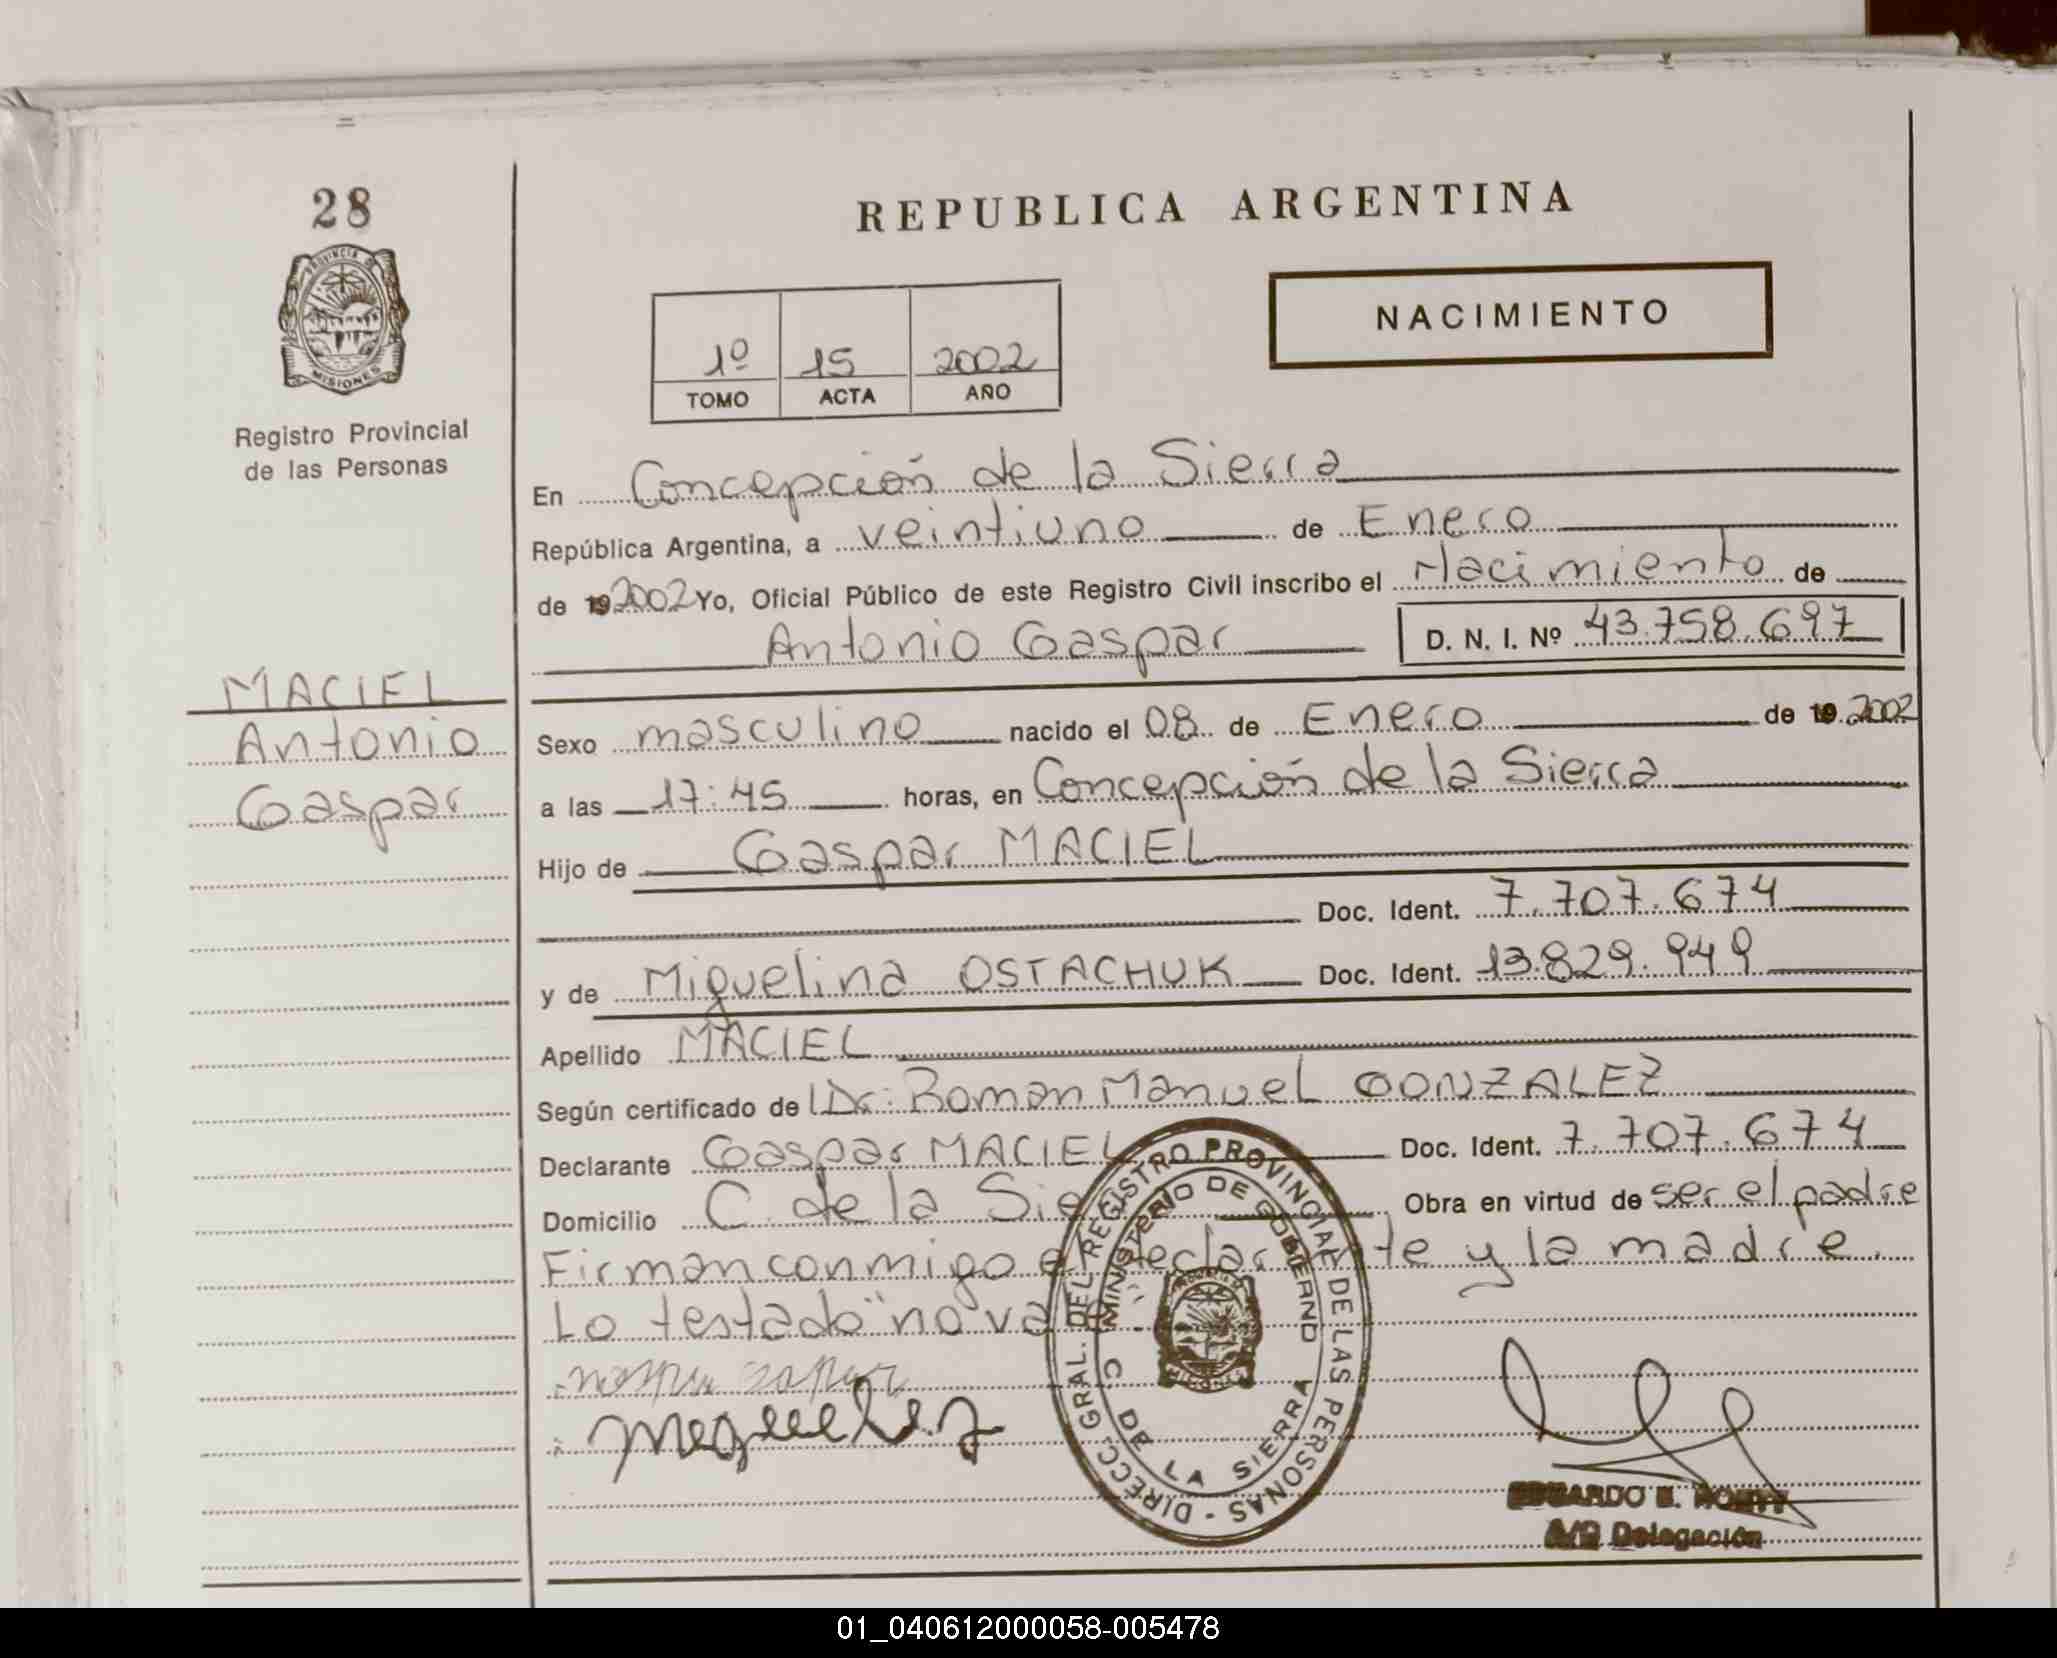 28
PROVINCIA DE
MISIONES
Registro Provincial
de las Personas
MACIEL
Antonio
Gaspar
REPUBLICA ARGENTINA
1º 15 2002
TOMO ACTA AÑO
NACIMIENTO
En Concepción de la Sierra
República Argentina, a veintiuno de Enero
de 19 2002 Yo, Oficial Público de este Registro Civil inscribo el Nacimiento de
Antonio Gaspar D. N. I. Nº 43.758.697
Sexo masculino nacido el 08 de Enero de 19 2002
a las 17:45 horas, en Concepción de la Sierra
Hijo de Gaspar MACIEL
Doc. Ident. 7.707.674
y de Miguelina OSTACHUK Doc. Ident. 13.829.949
Apellido MACIEL
Según certificado de Dr: Roman Manuel GONZALEZ
Declarante Gaspar MACIEL Doc. Ident. 7.707.674
Domicilio C. de la Sie Obra en virtud de ser el padre
Firman conmigo el declarante y la madre.
Lo testado "no vale"
DIRECC. GRAL. DEL REGISTRO PROVINCIAL DE LAS PERSONAS -
MINISTERIO DE GOBIERNO
C DE LA SIERRA
MISIONES
EDUARDO E.
A/C Delegación
01_040612000058-005478